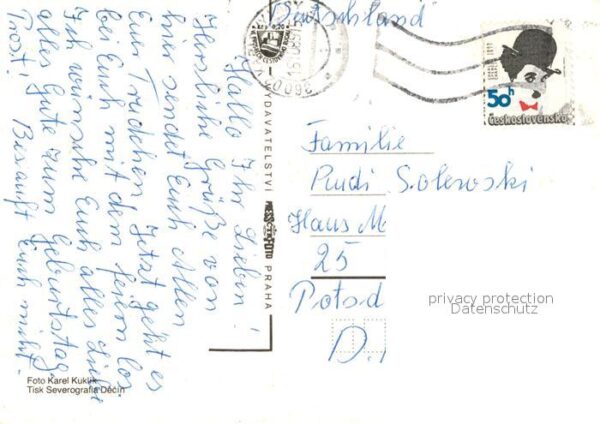 Deutschland
50h
Československo
Hallo Ihr Lieben!
Herzliche Grüße von
hier sendet Euch Allen
Eure Trudchen. Jetzt geht es
bei Euch mit dem feiern los.
Ich wünsche Euch alles Liebe
alles Gute zum Geburtstag.
Prost! Besauft Euch nicht.
VYDAVATELSTVÍ PRESSFOTO PRAHA
Familie
Rudi Solewski
Haus M
25
Potsd
D.
privacy protection
Datenschutz
Foto Karel Kuklík
Tisk Severografia Děčín